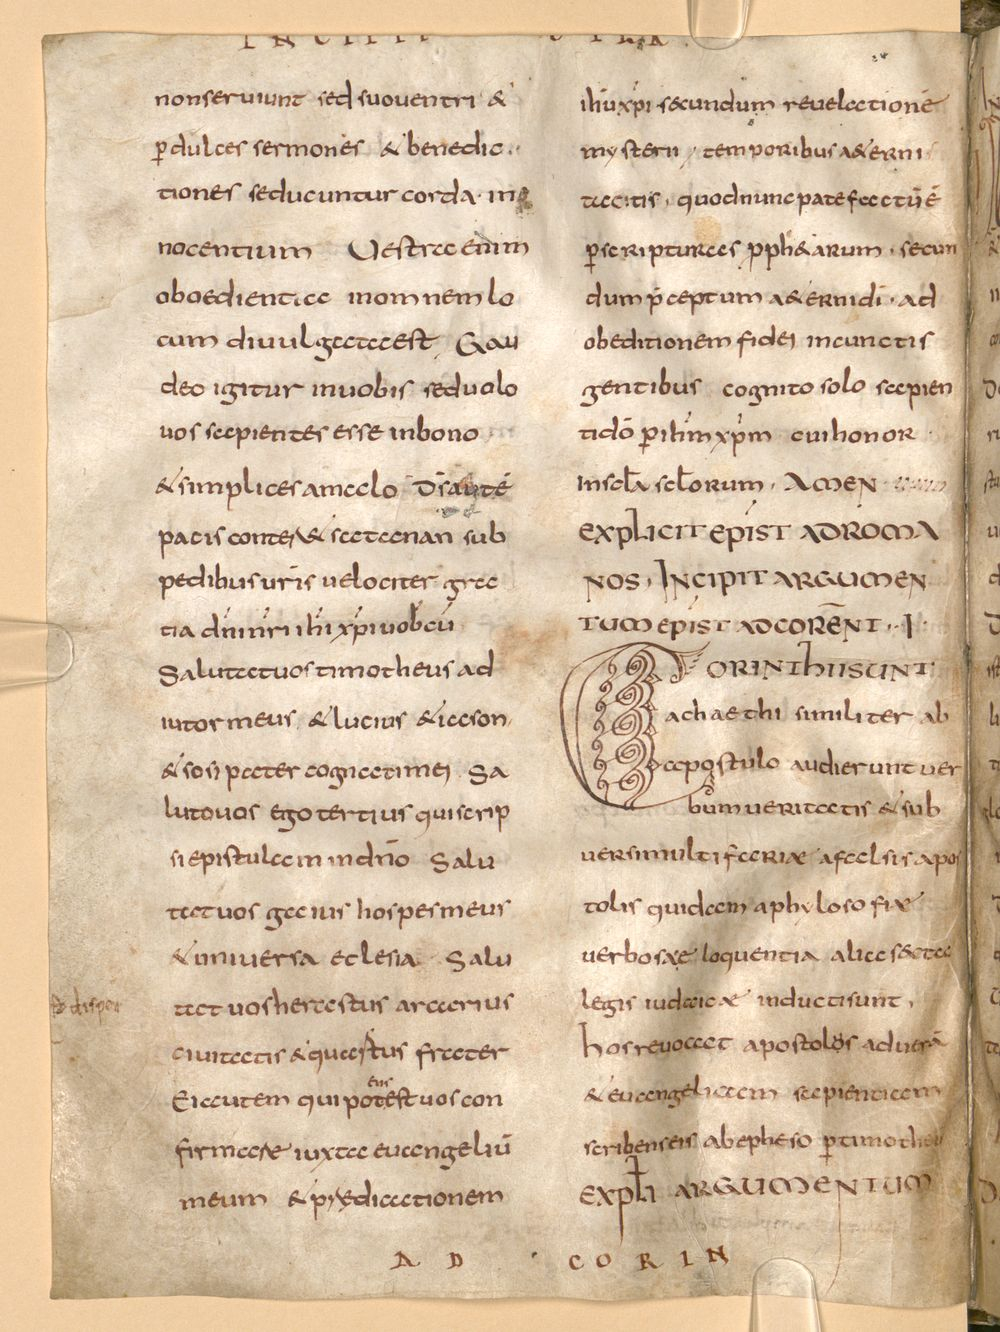 non seruiunt sed suo uentri &
p̱ dulces sermones & benedic
tiones seducuntur corda in
nocentium Uestra enim
oboedientia in omnem lo
cum diuulgata est Gau
deo igitur in uobis sed uolo
uos sapientes esse in bono
& simplices a malo d̄s autē
pacis conter& satanan sub
pedibus ur̄is uelociter gra
tia dn̄i nr̄i ih̄i xp̄i uobcū
Salutat uos timotheus ad
iutor meus & lucius & iason
& sosipater cognati mei Sa
luto uos ego tertius qui scrip
si epistulam in dn̄o Salu
tat uos gaius hospes meus
& uniuersa eclesia Salu
tat uos herastus arcarius
ciuitatis & quartus frater
eius
Ei autem qui potest uos con
firmare iuxta euangeliū
meum & prędicationem
ih̄u xp̄i secundum reuelationē
mysterii temporibus a&ernis
tacitis quod nunc patefactū ē
p̱ scripturas p̱ph&arum secun
dum p̄ceptum a&erni dī ad
obeditionem fidei in cunctis
gentibus cognito solo sapien
ti dō p̱ ih̄m xp̄m cui honor
in scl̄a scl̄orum Amen
EXPLICIT EPIST AD ROMA
NOS INCIPIT ARGUMEN
TUM EPIST AD CORĒNT I
CORINTHII SUNT
achaethi similiter ab
apostulo audierunt uer
bum ueritatis & sub
uersi multi fariæ a falsis apos
tolis quidam a phylosofiæ
uerbosæ loquentia alii a secta
legis iudaicæ inducti sunt
hos reuocat apostolos ad uerā
& euangelicam sapienticam
scribens eis ab epheso p̱ timotheū
EXPLI ARGUMENTUM
AD CORIN